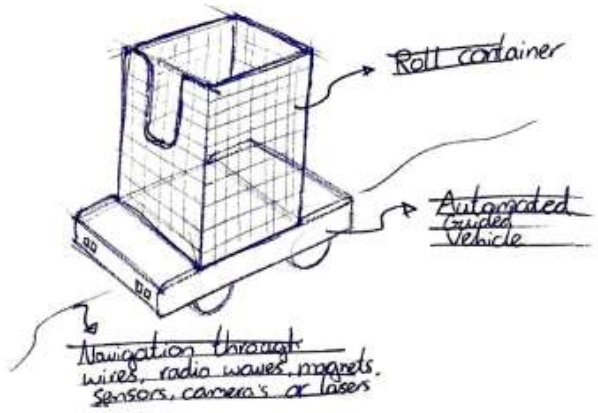 Roll container
Automated
Guided
Vehicle
Navigation through
wires, radio waves, magnets,
sensors, camera's or lasers